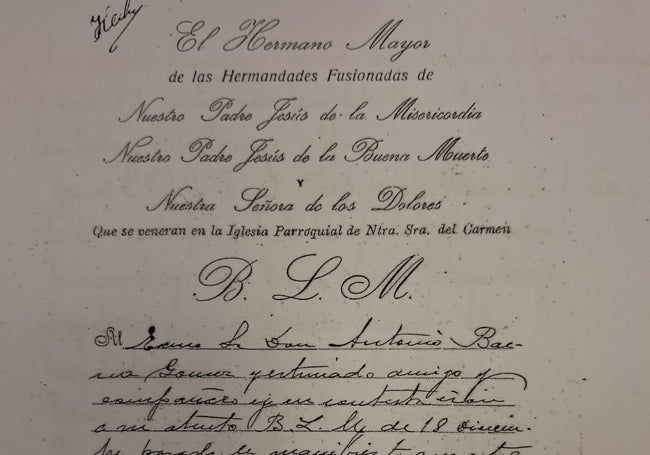 El Hermano Mayor
de las Hermandades Fusionadas de
Nuestro Padre Jesús de la Misericordia
Nuestro Padre Jesús de la Buena Muerte
Y
Nuestra Señora de los Dolores
Que se veneran en la Iglesia Parroquial de Ntra. Sra. del Carmen
B. L. M.
Al Excmo Sr Don Antonio Bae-
na Gomez y estimado amigo y
compañero y en contestación
a su atento B. L. M. de 18 Diciem
bre pasado le